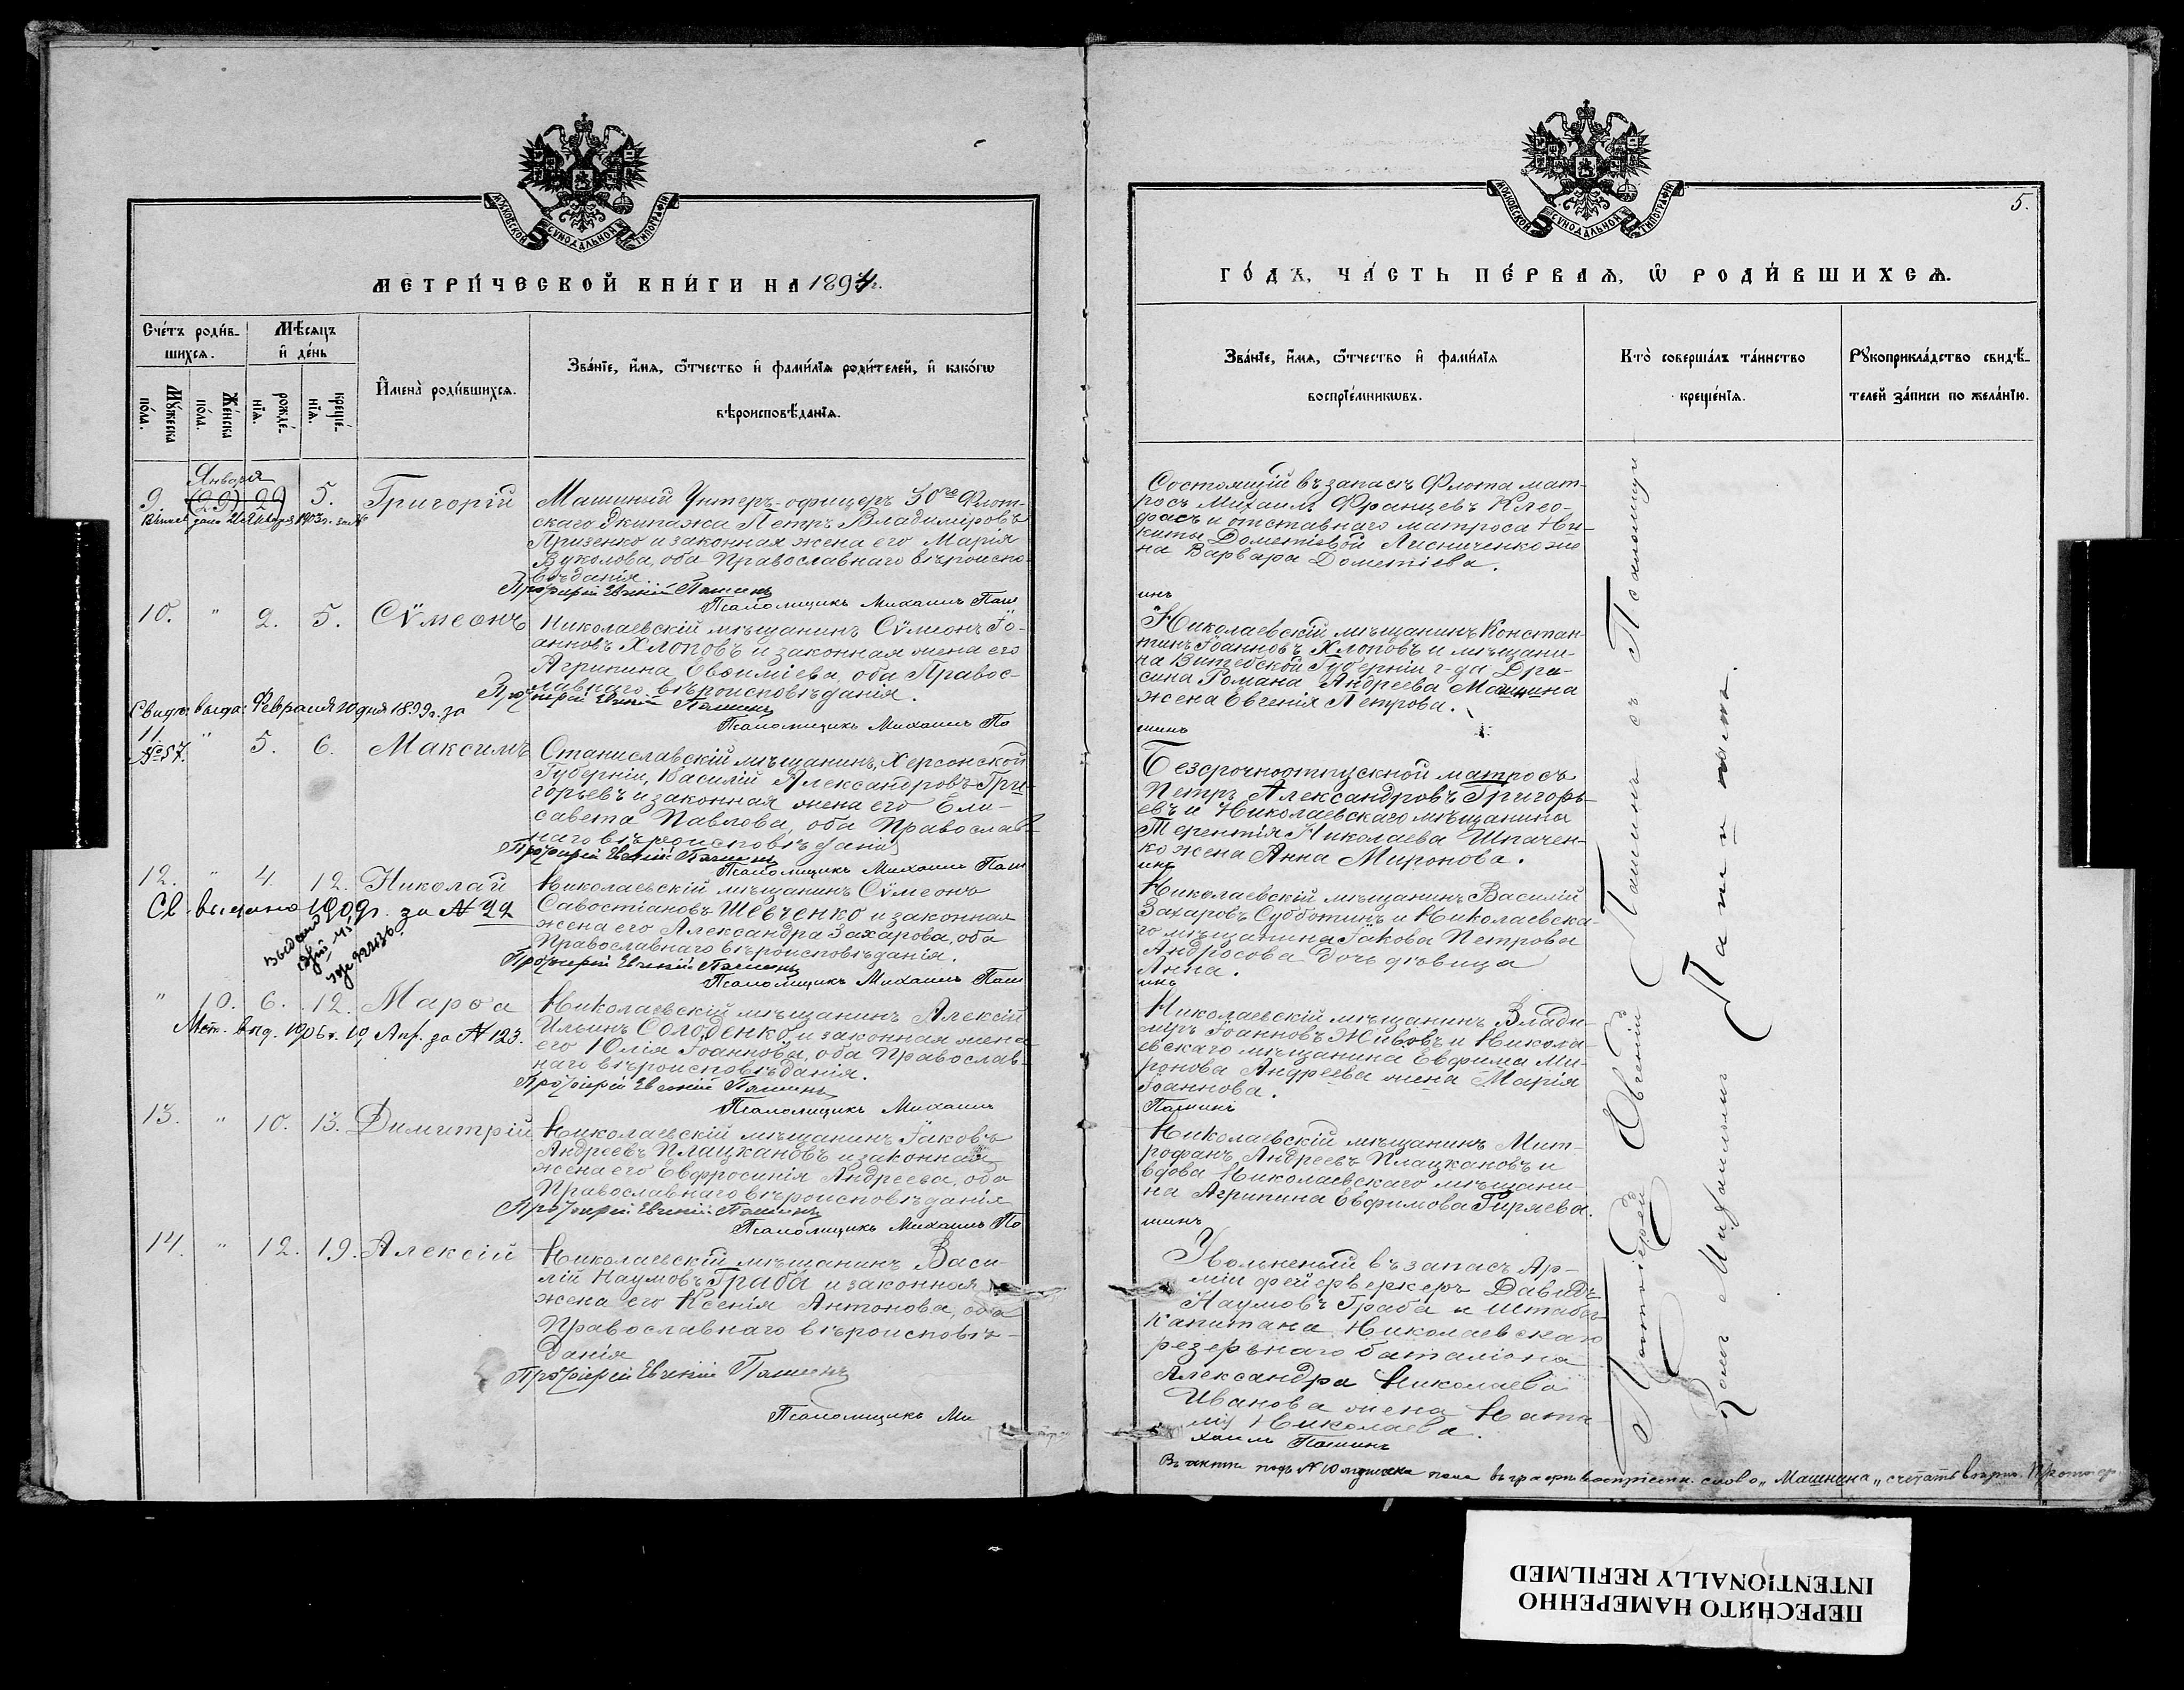 МОСКОВСКОЙ СѴНОДАЛЬНОЙ ТИПОГРАФІИ
МЕТРИ́ЧЕСКОЙ КНИ́ГИ НА 1894 г.
Сче́тъ роди́в-
шихсѧ.
Мѣ́сѧцъ
и҆ де́нь
Мꙋ́жеска
по́ла.
Же́нска
по́ла.
рожде́-
нїѧ.
креще́-
нїѧ.
И҆мена̀ роди́вшихсѧ.
Зва́нїе, и҆́мѧ, ѻ҆́тчество и҆ фами́лїѧ роди́телей, и҆ како́гѡ
вѣроисповѣ́данїѧ.
Января
9. (29) 29 5. Григорій
Машиный Унтеръ-офицеръ 30го Флот-
скаго Экипажа Петръ Владиміровъ
и законная жена его Марія
Вуколова, оба Православнаго вѣроиспо-
вѣданія.
Протоіерей Евгеній Пашинъ
Псаломщикъ Михаилъ Паш
10. " 2. 5. Сѵмеонъ
Николаевскій мѣщанинъ Сѵмеонъ Іо-
анновъ Хлоповъ и законная жена его
Агрипина Евѳиміева, оба Правос-
лавнаго вѣроисповѣданія.
Протоіерей Евгеній Пашинъ
Псаломщикъ Михаилъ Па
Свидѣ: выда: Февраля 20 дня 1899 г. за
№ 57.
11. " 5. 6. Максимъ
Станиславскій мѣщанинъ, Херсонской
Губерніи, Василій Александровъ Гри-
горьевъ и законная жена его Ели-
савета Павлова, оба Православ-
наго вѣроисповѣданія
Протоіерей Евгеній Пашинъ
Псаломщикъ Михаилъ Паш
12. " 4. 12. Николай
Св. выдано 1909 г. за № 22
Николаевскій мѣщанинъ Сѵмеонъ
Савостіановъ Шевченко и законная
жена его Александра Захарова, оба
Православнаго вѣроисповѣданія.
Протоіерей Евгеній Пашинъ
Псаломщикъ Михаилъ Паш
" 10. 6. 12. Марѳа
Мет. выд. 1906 г. 19 Апр. за № 123.
Николаевскій мѣщанинъ Алексій
Ильинъ Солоденко и законная жена
его Юлія Іоаннова, оба Православ-
наго вѣроисповѣданія.
Протоіерей Евгеній Пашинъ
Псаломщикъ Михаилъ
13. " 10. 13. Димитрій
Николаевскій мѣщанинъ Іаковъ
Андреевъ Плацкановъ и законная
жена его Евфросинія Андреева, оба
Православнаго вѣроисповѣданія
Протоіерей Евгеній Пашинъ
Псаломщикъ Михаилъ Па
14. " 12. 19. Алексій
Николаевскій мѣщанинъ Васи-
лій Наумовъ Граба и законная
жена его Ксенія Антонова, оба
Православнаго вѣроисповѣ-
данія
Протоіерей Евгеній Пашинъ
Псаломщикъ Ми
5.
МОСКОВСКОЙ СѴНОДАЛЬНОЙ ТИПОГРАФІИ
ГО́ДЪ, ЧА́СТЬ ПЕ́РВАѦ, Ѡ҆ РОДИ́ВШИХСѦ.
Зва́нїе, и҆́мѧ, ѻ҆́тчество и҆ фами́лїѧ
воспрїе́мникѡвъ.
Кто̀ соверша́лъ та́инство
креще́нїѧ.
Рꙋкоприкла́дство свидѣ́-
телей за́писи по жела́нїю.
Состоящій въ запасѣ Флота мат-
росъ Михаилъ Францевъ Клео-
фасъ и отставнаго матроса Ни-
киты Дометіевой Лисниченко же-
на Варвара Дометіева.
инъ
Николаевскій мѣщанинъ Констан-
тинъ Іоанновъ Хлоповъ и мѣщани-
на Витебской Губерніи г-да Дри-
сина Романа Андреева Машнина
жена Евгенія Петрова.
шинъ
Безсрочноотпускной матросъ
Петръ Александровъ Григорь-
евъ и Николаевскаго мѣщанина
Терентія Николаева Шпачен-
ко жена Анна Миронова.
инъ
Николаевскій мѣщанинъ Василій
Захаровъ Субботинъ и Николаевска-
го мѣщанина Іакова Петрова
Андросова дочь дѣвица
Анна.
инъ
Николаевскій мѣщанинъ Влади-
міръ Іоанновъ Живовъ и Никола-
евскаго мѣщанина Евфима Ми-
ронова Андреева жена Марія
Іоаннова.
Пашинъ
Николаевскій мѣщанинъ Мит-
рофанъ Андреевъ Плацкановъ и
вдова Николаевскаго мѣщани-
на Агрипина Евфимова Гиряева.
шинъ
Уволненый въ запасъ Ар-
міи фейерверкеръ Давидъ
Наумовъ Граба и Штабсъ
Капитана Николаевскаго
резервнаго баталіона
Александра Николаева
Иванова жена Ната-
лія Николаева.
хаилъ Пашинъ
Протоіерей Евгеній Пашинъ съ Псаломщи-
комъ Михаиломъ Пашинымъ.
Въ актѣ подъ № 10 мужеска пола въ графѣ воспріемн. слово „Машнина„ считать вѣрн. Протоіер.
ПЕРЕСНЯТО НАМЕРЕННО
INTENTIONALLY REFILMED